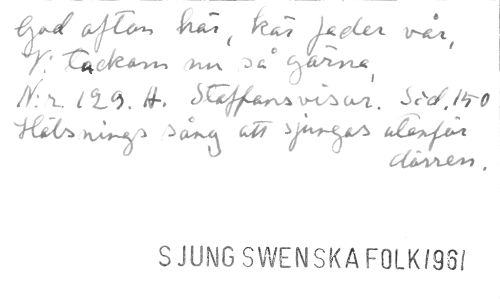 God afton här, kär fader vår,
Vi tackom nu så gärna,
N:r 129. H. Staffansvisor. Sid. 150
Hälsnings sång att sjungas utanför
dörren.
SJUNG SWENSKA FOLK 1961